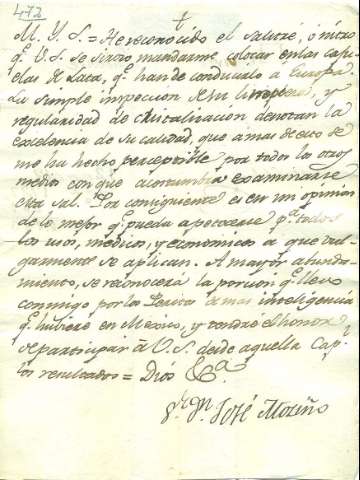 472
M. Y. S. = He reconocido el Salitre, ó nitro
q.e V.S. se sirvio mandarme colocar en las caji-
elas de Lata, q.e han de conducirlo a Europa.
La simple inspeccion de su limpieza, y
regularidad de christalización denotan la
excelencia de su calidad, que a mas de eso se
me ha hecho perceptible por todos los otros
medios con que acostumbra examinarse
esta sal. Por consiguiente es en mi opinion
de lo mejor q.e pueda apetecerse p.a todos
los usos, medicos, y economicos a que vul-
garmente se aplican. A mayor abunda-
miento, se reconocerá la porcion q.e llevo
conmigo por los Peritos de mas inteligencia
q.e hubiere en Mexico, y tendré el honor
de participar à V.S. desde aquella Cap.l
los resultados = Dios &.a
S.or D.n José Moziño